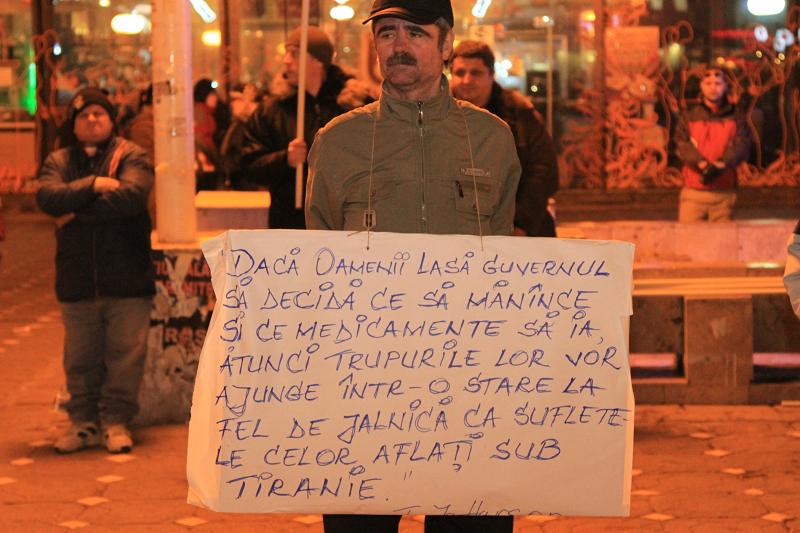 DACĂ OAMENII LASĂ GUVERNUL
SĂ DECIDĂ CE SĂ MĂNÎNCE
ȘI CE MEDICAMENTE SĂ IA,
ATUNCI TRUPURILE LOR VOR
AJUNGE ÎNTR-O STARE LA
FEL DE JALNICĂ CA SUFLETE-
LE CELOR AFLAȚI SUB
TIRANIE."